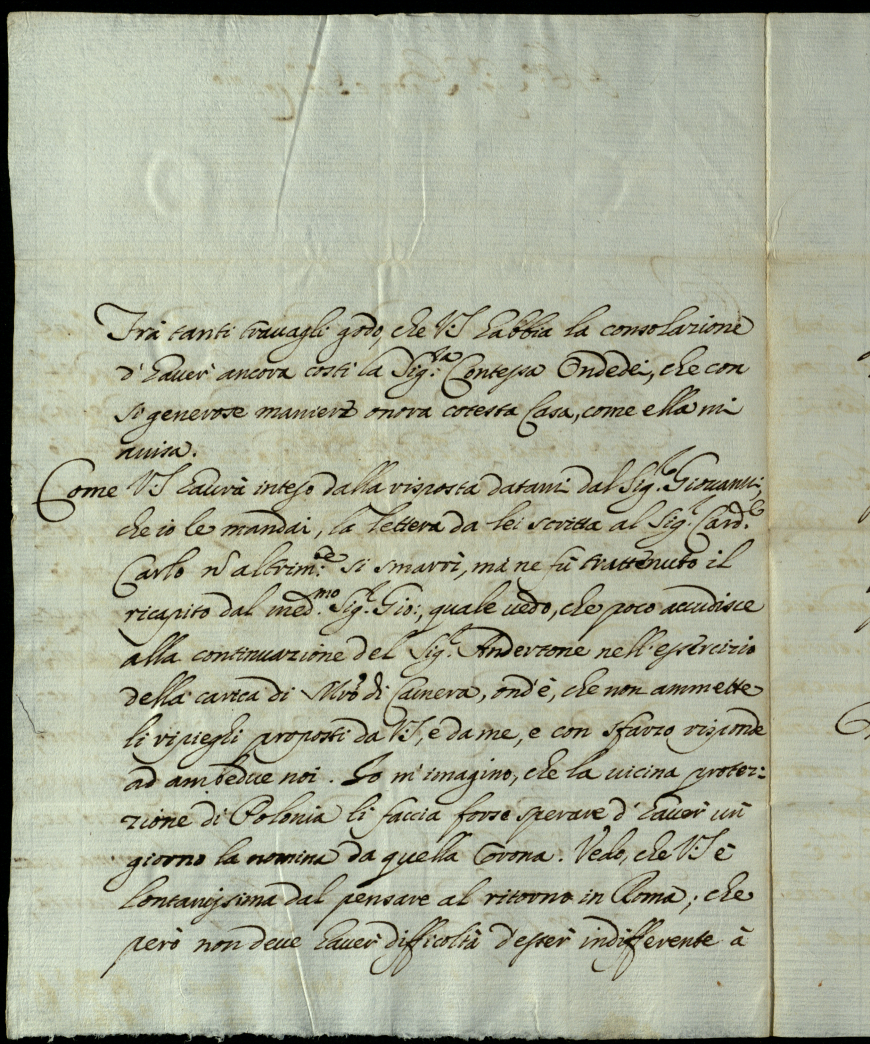 Trà tanti travagli godo, che V.S. habbia la consolazione
d'haver ancora costì la Sig.ra Contessa Ondedei, che con
si generose maniere onora cotesta Casa, come ella mi
avisa.
Come V.S. havrà inteso dalla risposta datami dal Sig.r Giovanni,
che io le mandai, la lettera da lei scritta al Sig.r Card.le
Carlo nō altrim.te si smarrì, mà ne fù trattenuto il
ricapito dal med.mo Sig.r Gio:, quale vedo, che poco accudisce
alla continuazione del Sig.r Andertone nell'essercizio
della carica di Mrō di Camera, ond'è, che non ammette
li ripieghi proposti da V.S., e da me, e con sfarzo risponde
ad ambedue noi. Io m'imagino, che la vicina protez:
zione di Polonia li faccia forse sperare d'haver un
giorno la nomina da quella Corona. Vedo, che V.S. è
lontanissima dal pensare al ritorno in Roma; che
però non deve haver difficoltà d'esser indifferente à